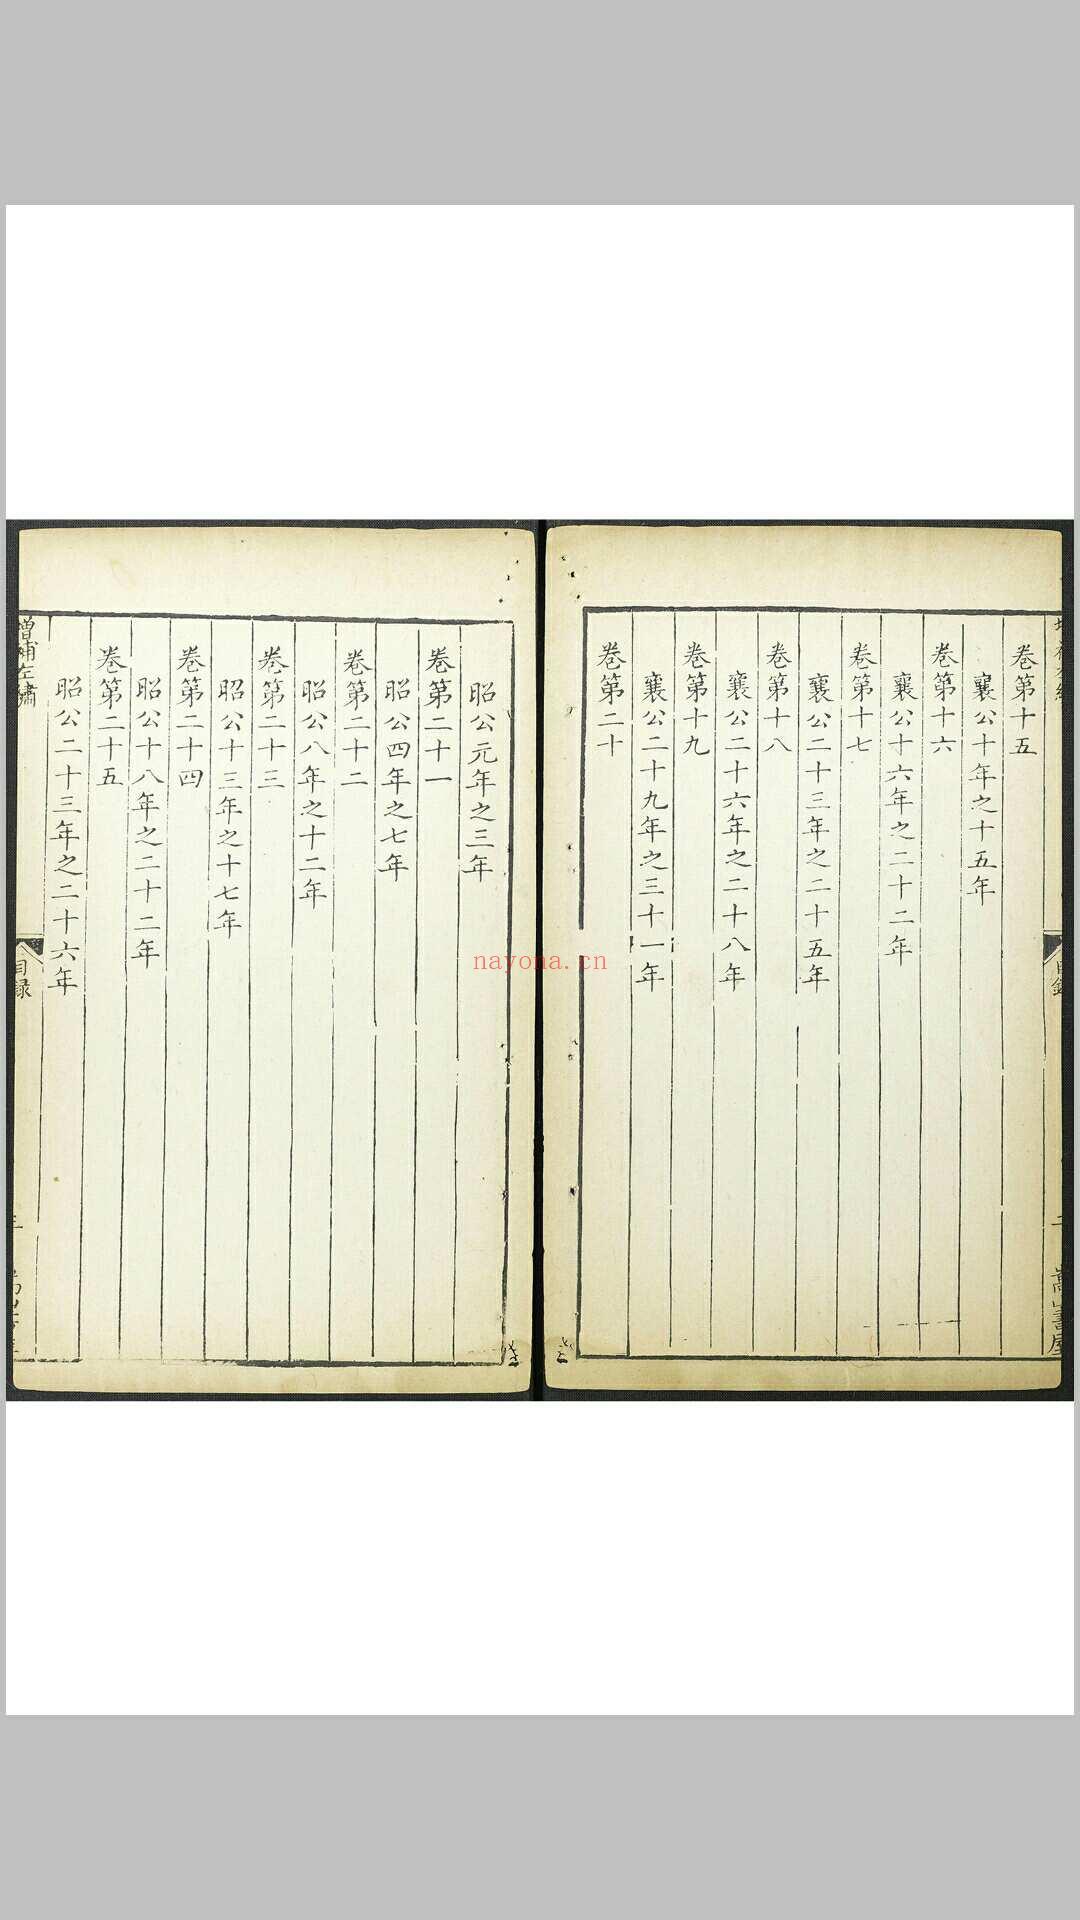 卷第十五
襄公十年之十五年
卷第十六
襄公十六年之二十二年
卷第十七
襄公二十三年之二十五年
卷第十八
襄公二十六年之二十八年
卷第十九
襄公二十九年之三十一年
卷第二十
目錄
二
嵩山書屋
昭公元年之三年
卷第二十一
昭公四年之七年
卷第二十二
昭公八年之十二年
卷第二十三
昭公十三年之十七年
卷第二十四
昭公十八年之二十二年
卷第二十五
昭公二十三年之二十六年
增補左繡
目録
三
nayona.cn